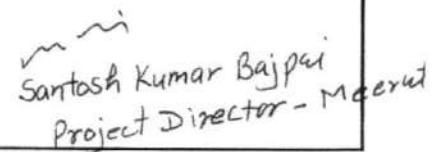 Santosh Kumar Bajpai
Project Director - Meerut